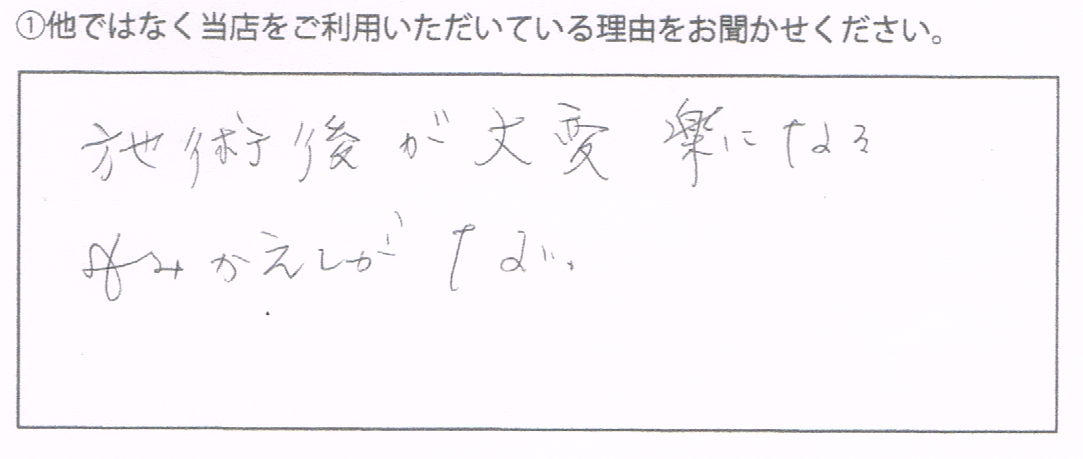 ①他ではなく当店をご利用いただいている理由をお聞かせください。
施術後が大変楽になる
もみかえしがない、